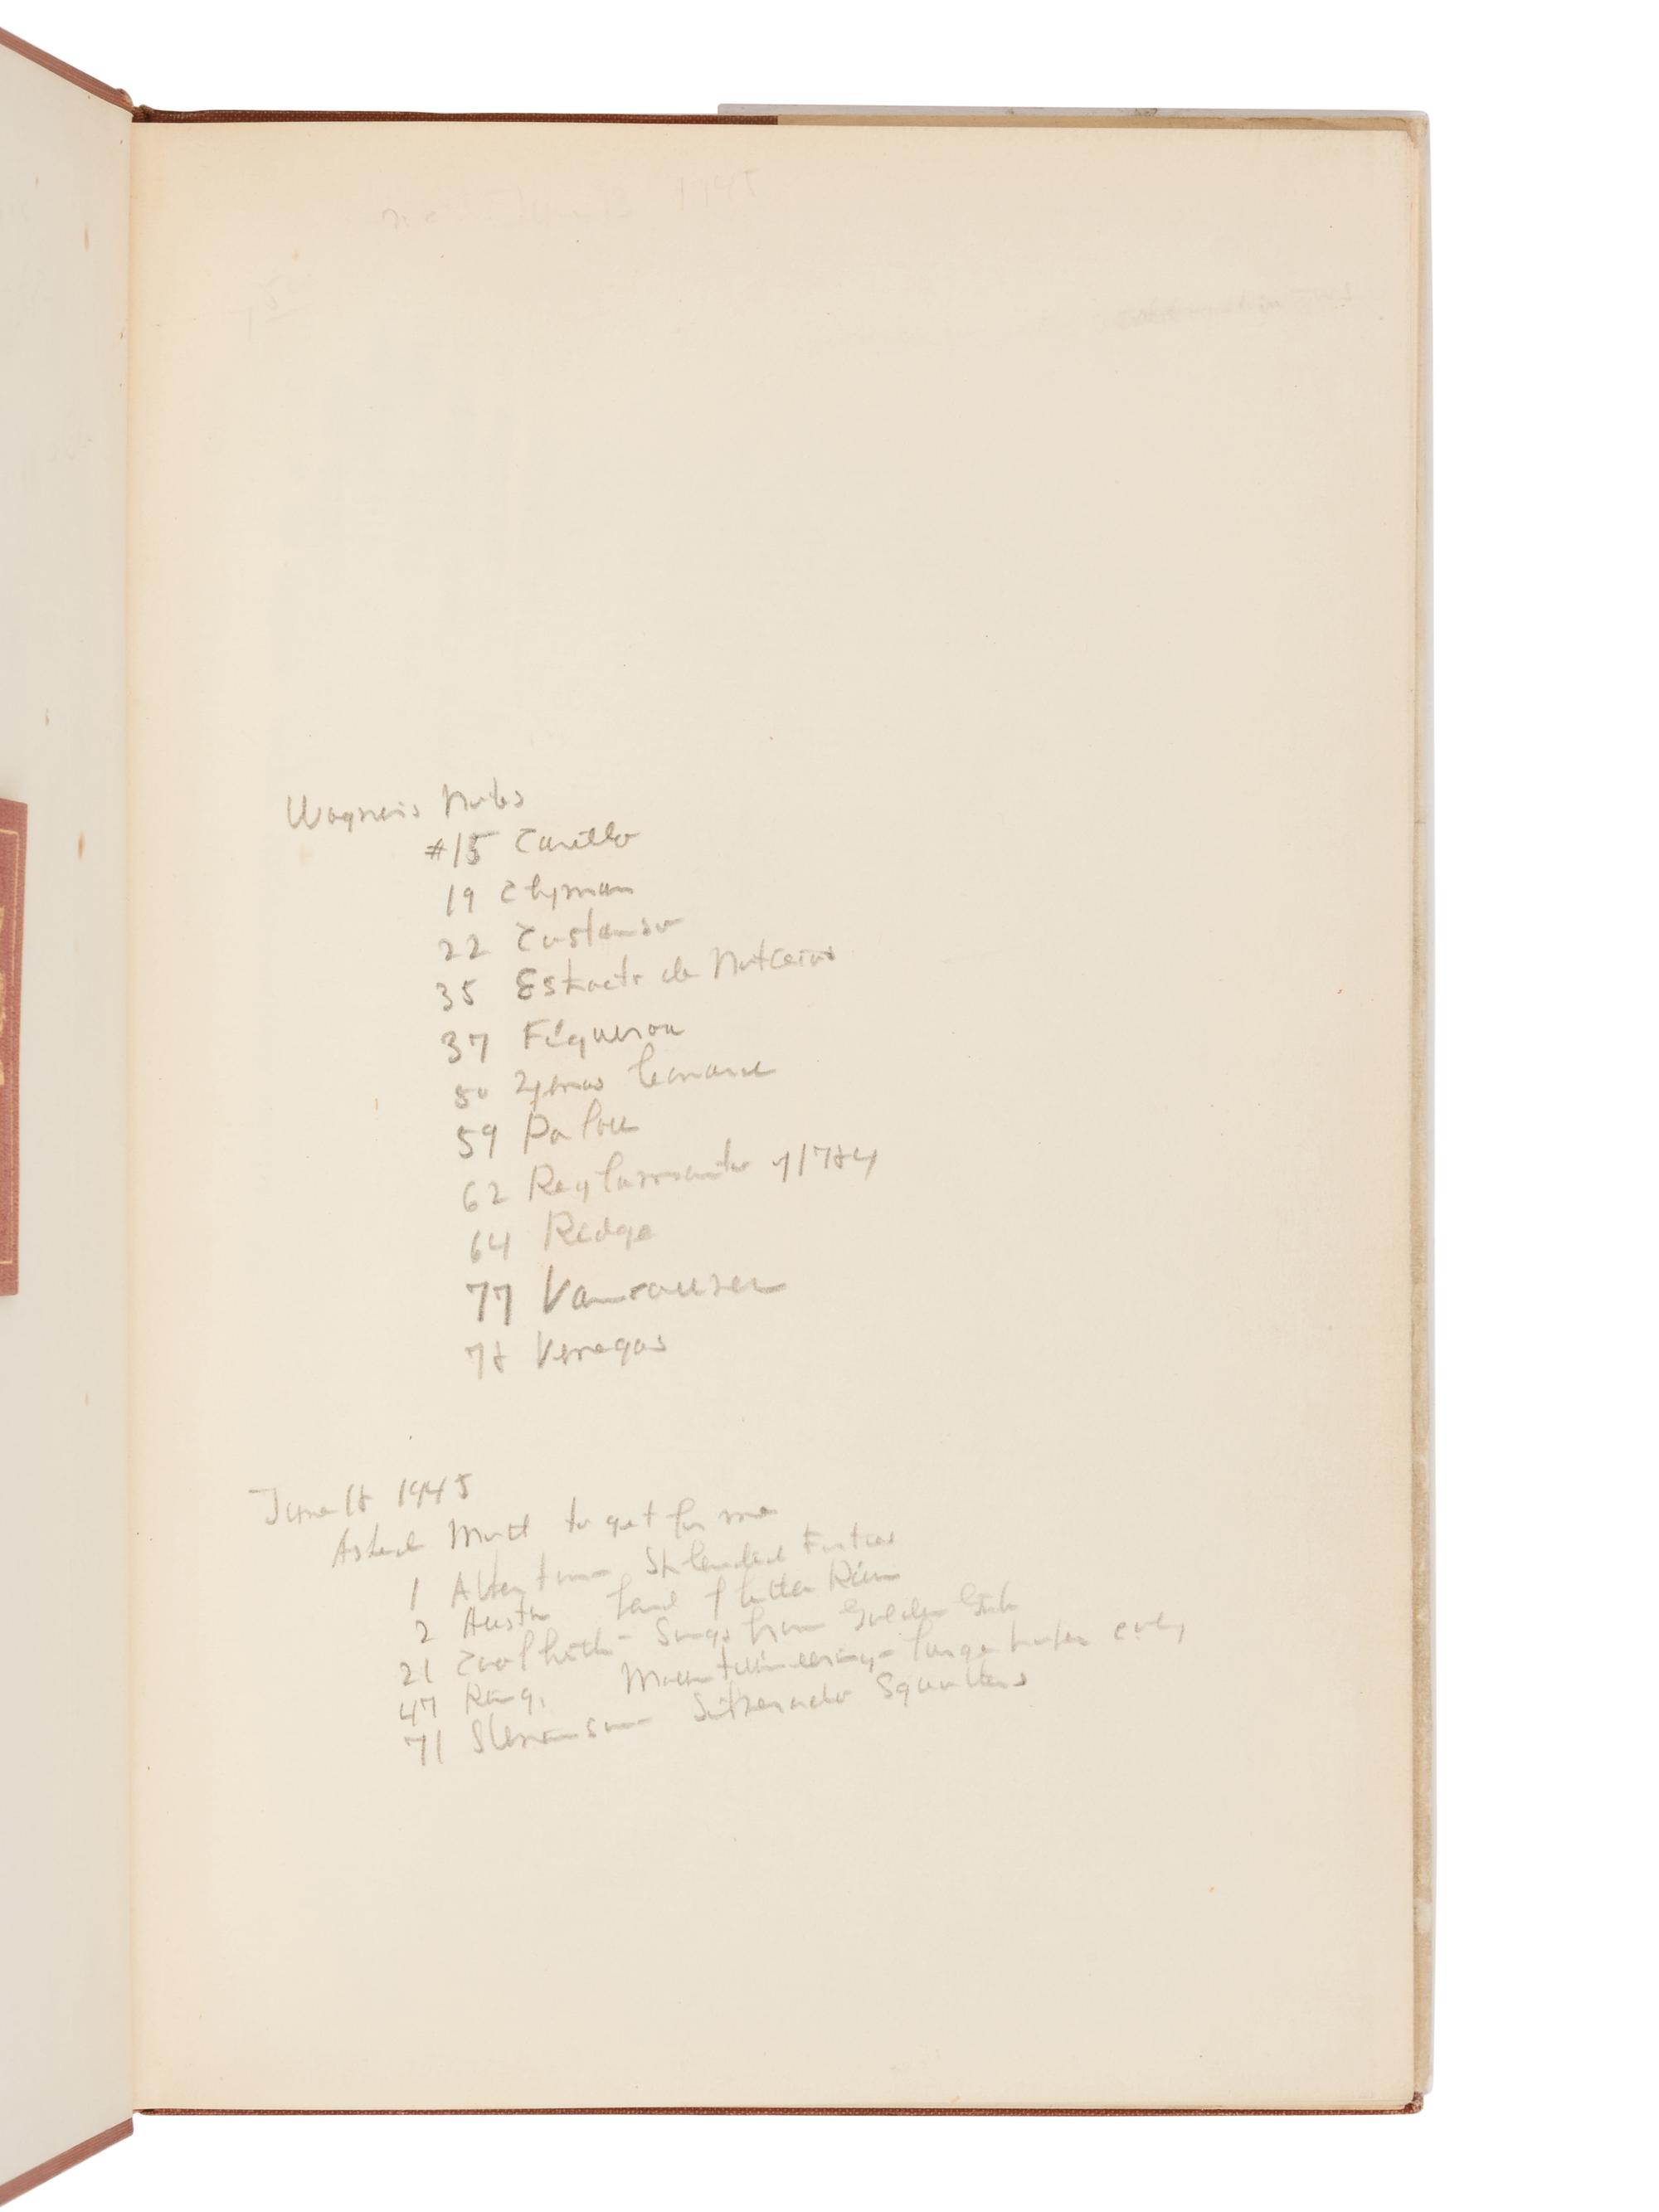 Wagner's Notes
#15 Carillo
19 Clyman
22 Costanso
35 Estracto de Noticias
37 Figueroa
50 Zenas Leonard
59 Palou
62 Reglamento of 1784
64 Ridge
77 Vancouver
78 Venegas
June 18 1945
Asked Mott to get for me
1 Atherton - Splendid Forties
2 Austin Land of Little Rain
21 Coolbrith - Songs from Golden Gate
47 King, Mountaineering - large paper
71 Stevenson - Silverado Squatters